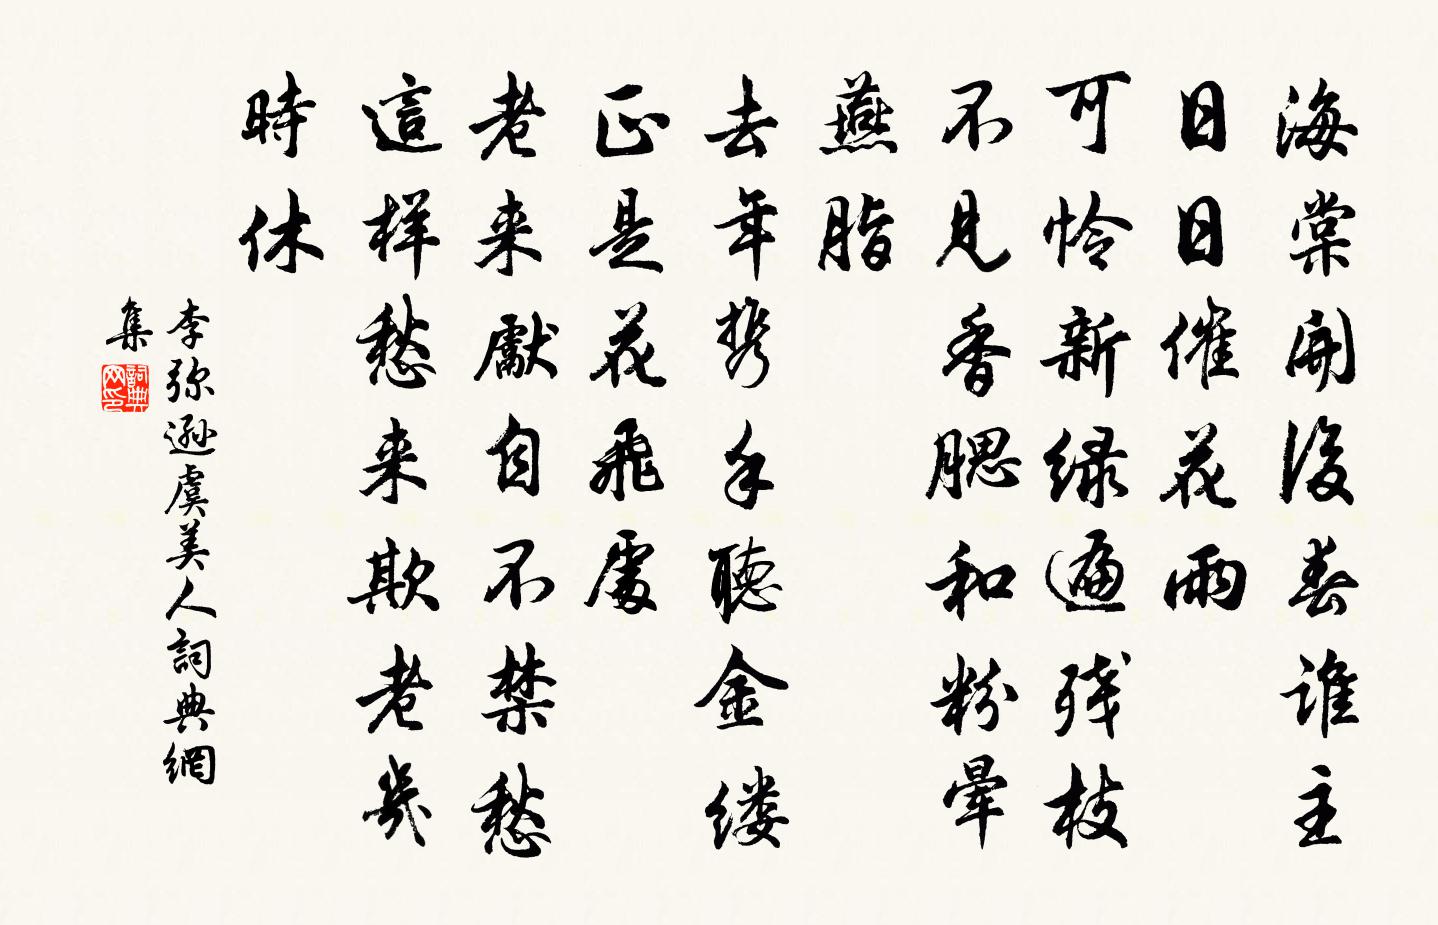 海棠開後春谁主
日日催花雨
可怜新緑遍残枝
不見香腮和粉暈
燕脂
去年携手聽金缕
正是花飛處
老来獻自不禁愁
這样愁来欺老幾
時休
李弥遜虞美人詞典網
集
詞典
网印